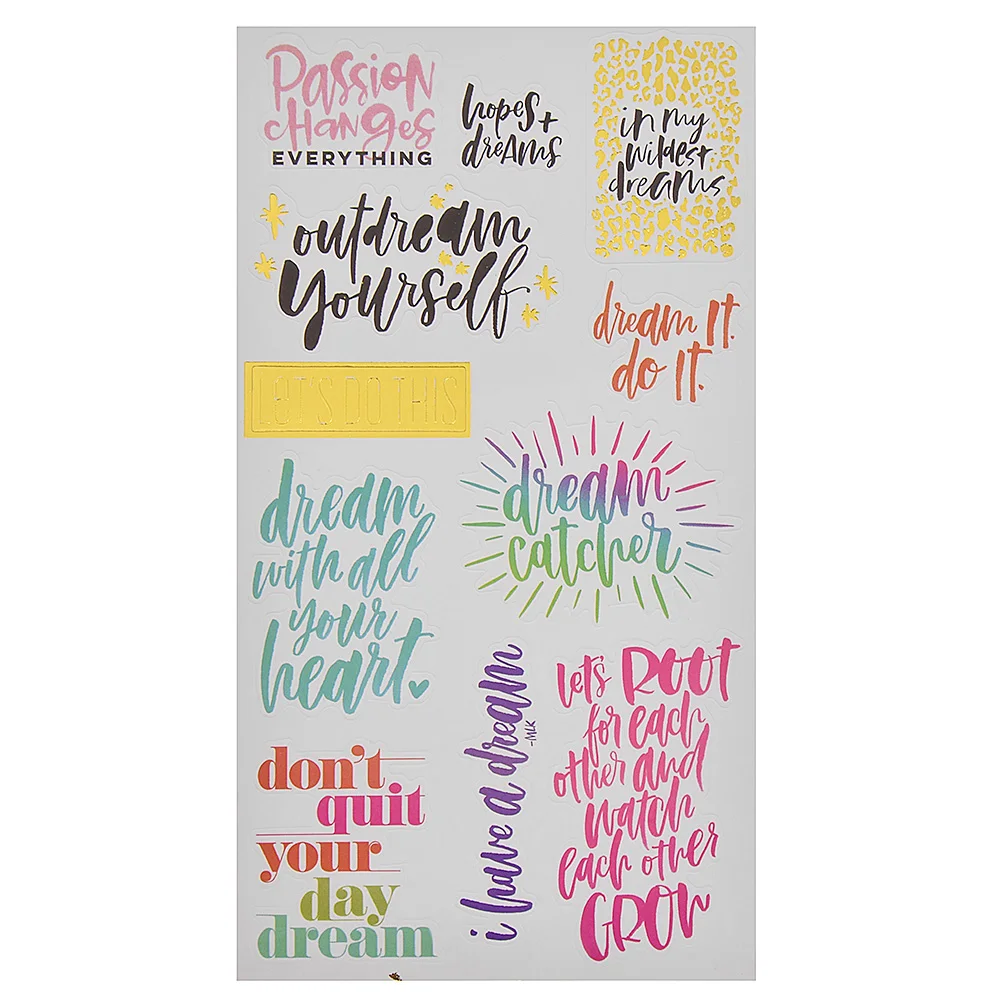 Passion
changes
EVERYTHING
hopes +
dreams
in my
wildest
dreams
outdream
yourself
dream It.
do It.
LET'S DO THIS
dream
with all
your
heart.
dream
catcher
i have a dream
-MLK
let's ROOT
for each
other and
watch
each other
GROW
don't
quit
your
day
dream